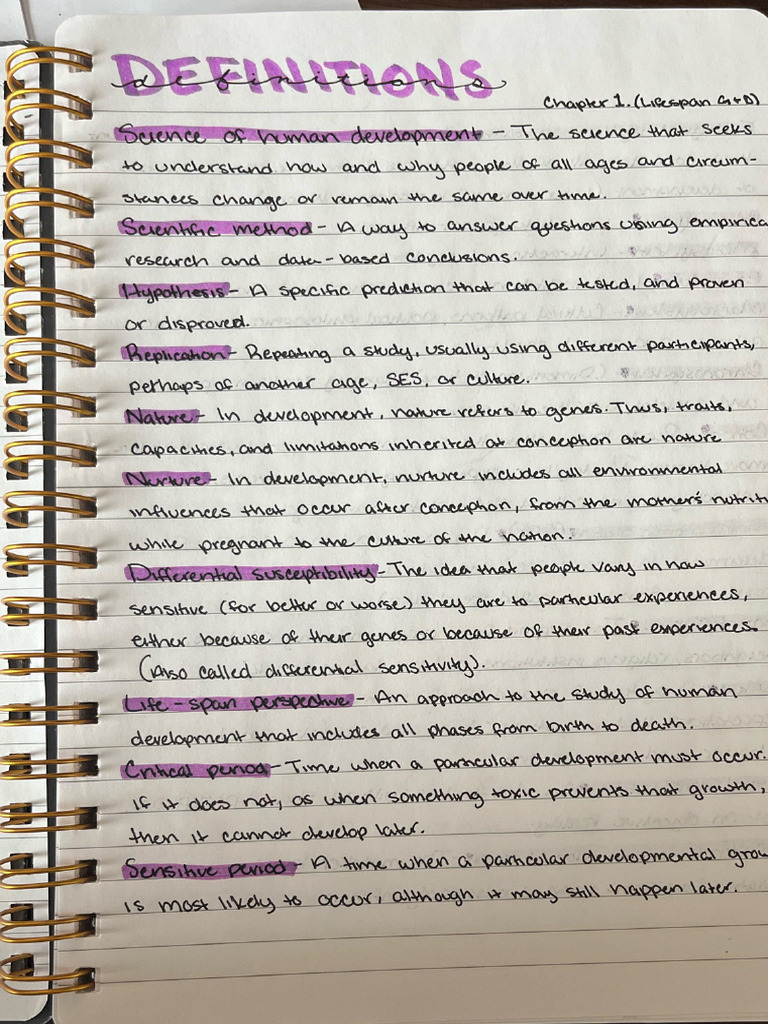 DEFINITIONS
definitions
Chapter 1. (Lifespan G+D)
Science of human development - The science that seeks
to understand how and why people of all ages and circum-
stances change or remain the same over time.
Scientific method - A way to answer questions using empirica
research and data-based conclusions.
Hypothesis - A specific prediction that can be tested, and proven
or disproved.
Replication - Repeating a study, usually using different participants,
perhaps of another age, SES, or culture.
Nature - In development, nature refers to genes. Thus, traits,
capacities, and limitations inherited at conception are nature
Nurture - In development, nurture includes all environmental
influences that occur after conception, from the mother's nutriti
while pregnant to the culture of the nation.
Differential susceptibility - The idea that people vary in how
sensitive (for better or worse) they are to particular experiences,
either because of their genes or because of their past experiences.
(Also called differential sensitivity).
Life-span perspective - An approach to the study of human
development that includes all phases from birth to death.
Critical period - Time when a particular development must occur.
If it does not, as when something toxic prevents that growth,
then it cannot develop later.
Sensitive period - A time when a particular developmental grow
is most likely to occur, although it may still happen later.